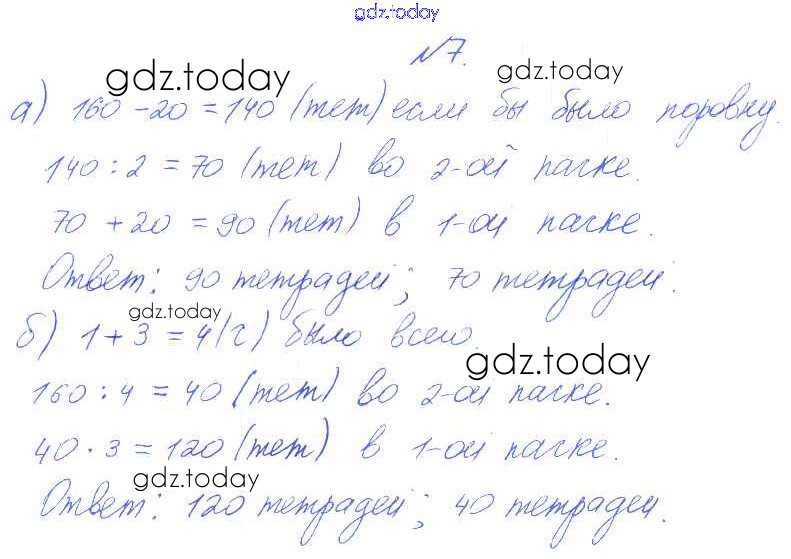 gdz.today
№7.
gdz.today gdz.today
а) 160 - 20 = 140 (тет) если бы было поровну.
140 : 2 = 70 (тет) во 2-ой пачке.
70 + 20 = 90 (тет) в 1-ой пачке.
Ответ: 90 тетрадей; 70 тетрадей.
gdz.today
б) 1 + 3 = 4 (ч) было всего.
gdz.today
160 : 4 = 40 (тет) во 2-ой пачке.
40 · 3 = 120 (тет) в 1-ой пачке.
gdz.today
Ответ: 120 тетрадей; 40 тетрадей.